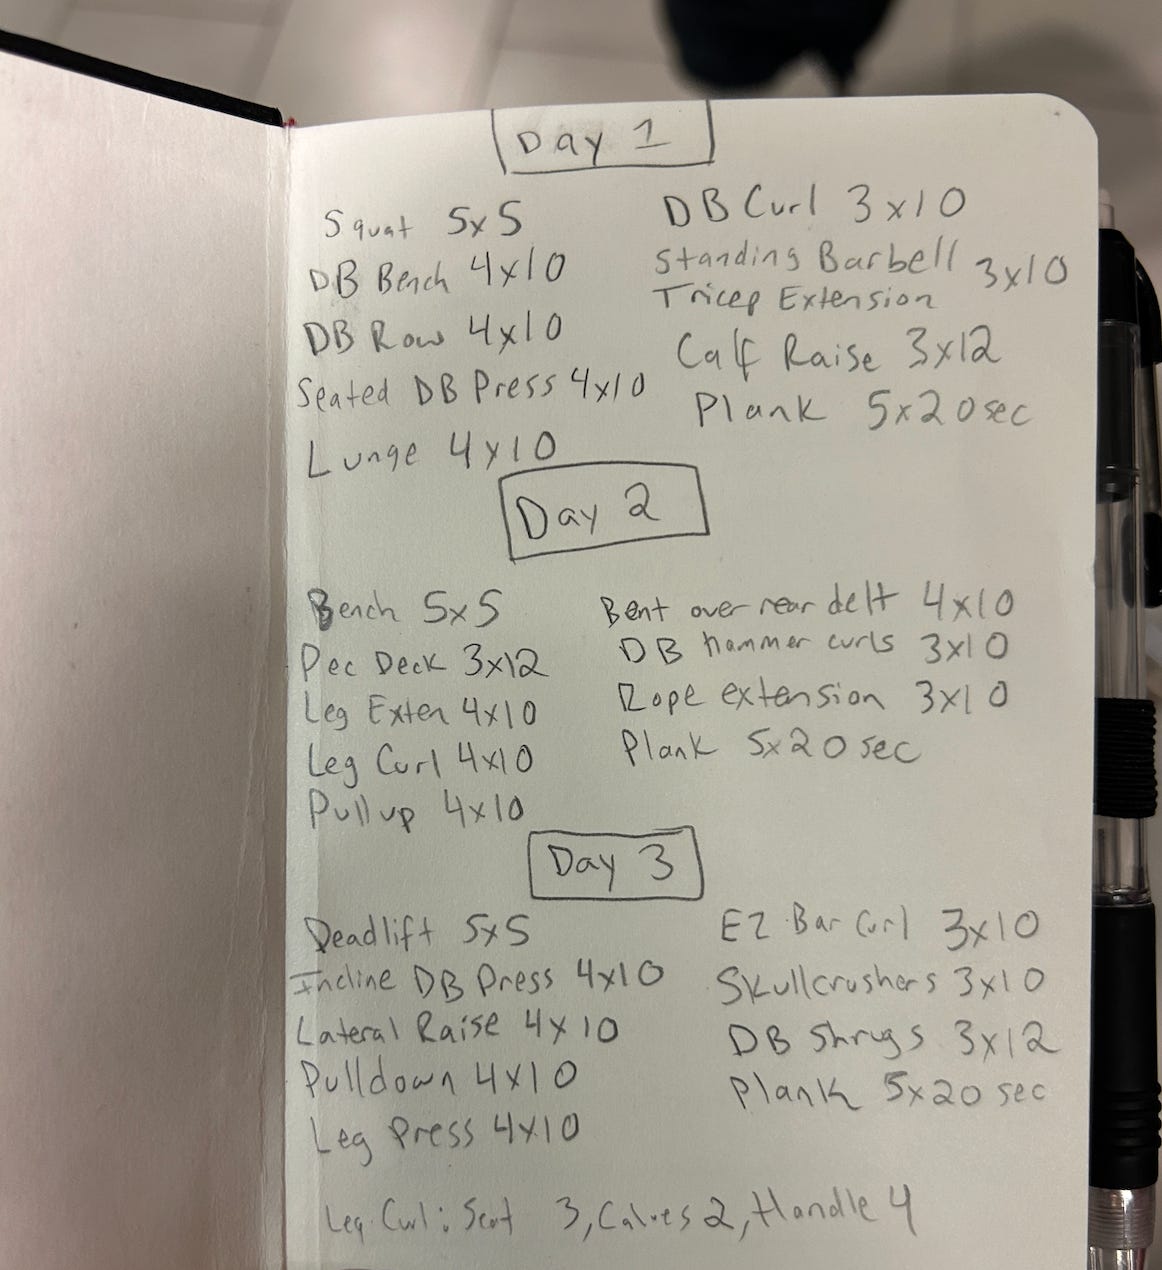 Day 1
Squat 5x5
DB Bench 4x10
DB Row 4x10
Seated DB Press 4x10
Lunge 4x10
DB Curl 3x10
Standing Barbell 3x10
Tricep Extension
Calf Raise 3x12
Plank 5x20sec
Day 2
Bench 5x5
Pec Deck 3x12
Leg Exten 4x10
Leg Curl 4x10
Pull up 4x10
Bent over rear delt 4x10
DB hammer curls 3x10
Rope extension 3x10
Plank 5x20 sec
Day 3
Deadlift 5x5
Incline DB Press 4x10
Lateral Raise 4x10
Pulldown 4x10
Leg Press 4x10
EZ Bar Curl 3x10
Skullcrushers 3x10
DB Shrugs 3x12
Plank 5x20 sec
Leg Curl: Seat 3, Calves 2, Handle 4